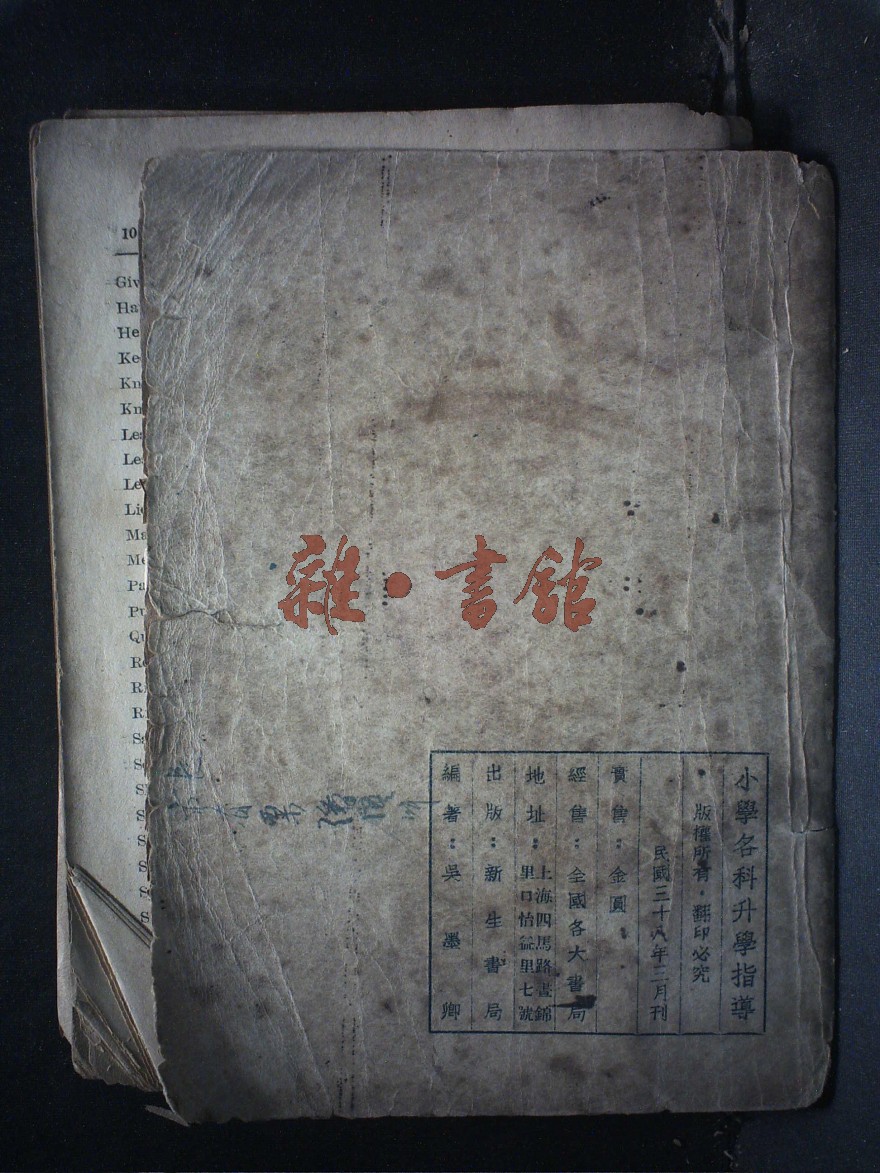 小學各科升學指導
版權所有・翻印必究
民國三十八年三月刊
實售：金圓
經售：全國各大書局
地址：上海四馬路晝錦
里口怡益里七號
出版：新生書局
編著：吳墨卿
雜・書館
10
Giv
Ha
He
Ke
Kn
Kn
Le
Le
Le
Li
Ma
Me
Pa
Pu
Qu
Re
R
R
S
S
S
S
S
S
S
S